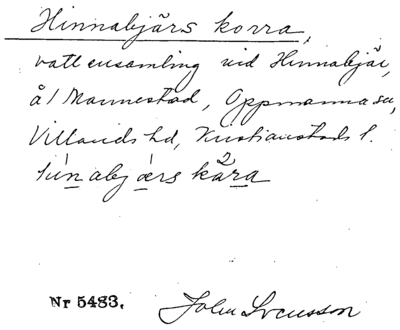 Hinnabjärs korra,
vattensamling vid Hinnabjär,
å 1 Mannestad, Oppmanna sn,
Villands hd, Kristianstads l.
kåra
Nr 5483. John Svensson